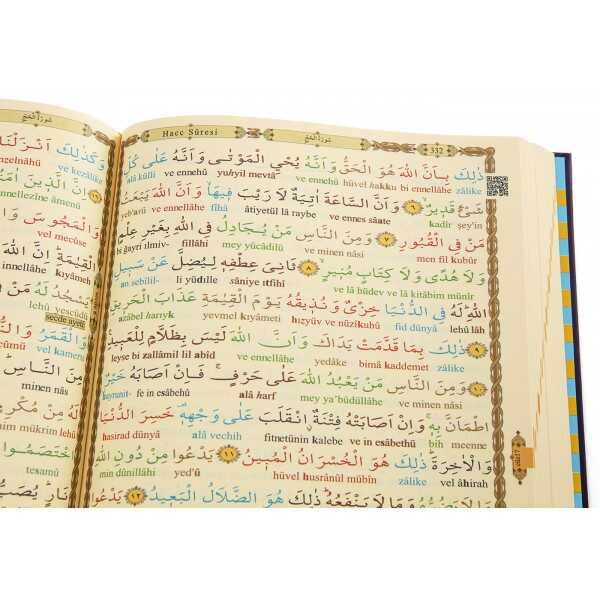 Hacc Sûresi
سُورَةُ الْحَجِّ
332
ذٰلِكَ بِاَنَّ اللّٰهَ هُوَ الْحَقُّ وَاَنَّهُ يُحْيِ الْمَوْتٰى وَاَنَّهُ عَلٰى كُلِّ
zâlike bi ennellahe hüvel hakku ve ennehû yuhyil mevtâ ve ennehû alâ külli
شَيْءٍ قَدِيرٌ ﴿٦﴾ وَاَنَّ السَّاعَةَ اٰتِيَةٌ لَا رَيْبَ فِيهَا وَاَنَّ اللّٰهَ يَبْعَثُ
şey'in kadîr ve ennes sâate âtiyetül lâ raybe fîhâ ve ennellahe yeb'asü
مَنْ فِي الْقُبُورِ ﴿٧﴾ وَمِنَ النَّاسِ مَنْ يُجَادِلُ فِي اللّٰهِ بِغَيْرِ عِلْمٍ
men fil kubûr ve minen nâsi mey yücâdilü fillâhi bi ğayri ılmiv-
وَلَا هُدًى وَلَا كِتَابٍ مُنِيرٍ ﴿٨﴾ ثَانِيَ عِطْفِهِ لِيُضِلَّ عَنْ سَبِيلِ
ve lâ hüdev ve lâ kitâbim münîr sâniye ıtfihî li yüdılle an sebîlil-
اللّٰهِ لَهُ فِي الدُّنْيَا خِزْيٌ وَنُذِيقُهُ يَوْمَ الْقِيٰمَةِ عَذَابَ الْحَرِيقِ
lehû lâh fid dünyâ hızyüv ve nüzîkuhû yevmel kıyâmeti azâbel harıyk
﴿٩﴾ ذٰلِكَ بِمَا قَدَّمَتْ يَدَاكَ وَاَنَّ اللّٰهَ لَيْسَ بِظَلَّامٍ لِلْعَبِيدِ
zâlike bimâ kaddemet yedâke ve ennellahe leyse bi zallâmil lil abîd
﴿١٠﴾ وَمِنَ النَّاسِ مَنْ يَعْبُدُ اللّٰهَ عَلٰى حَرْفٍ فَاِنْ اَصَابَهُ خَيْرٌ
ve minen nâsi mey ya'büdüllahe alâ harf fe in esâbehû hayrunit-
اطْمَاَنَّ بِهِ وَاِنْ اَصَابَتْهُ فِتْنَةٌ انْقَلَبَ عَلٰى وَجْهِهِ خَسِرَ الدُّنْيَا
meenne bih ve in esâbethü fitnetünin kalebe alâ vechih hasirad dünyâ
وَالْاٰخِرَةَ ذٰلِكَ هُوَ الْخُسْرَانُ الْمُبِينُ ﴿١١﴾ يَدْعُوا مِنْ دُونِ اللّٰهِ
vel âhirah zâlike hüvel husrânül mübîn yed'û min dûnillâhi
مَا لَا يَضُرُّهُ وَمَا لَا يَنْفَعُهُ ذٰلِكَ هُوَ الضَّلَالُ الْبَعِيدُ ﴿١٢﴾ يَدْعُوا
cüz 17
سُورَةُ الْحَجِّ
وَكَذٰلِكَ اَنْزَلْنَاهُ
ve kezâlike enzelnâhü
اِنَّ الَّذِينَ اٰمَنُوا
innellezîne âmenû
وَالْمَجُوسَ
vel mecûse
الْقِيٰمَةِ اِنَّ اللّٰهَ
kıyâmeh innellâhe
يَسْجُدُ لَهُ مَنْ
yescüdü lehû
secde ayeti
وَالْقَمَرُ
vel kameru
مِنَ النَّاسِ
minen nâs
مِنْ مُكْرِمٍ
mim mükrim
اخْتَصَمُوا
tesamû
نَارٍ يُصَبُّ